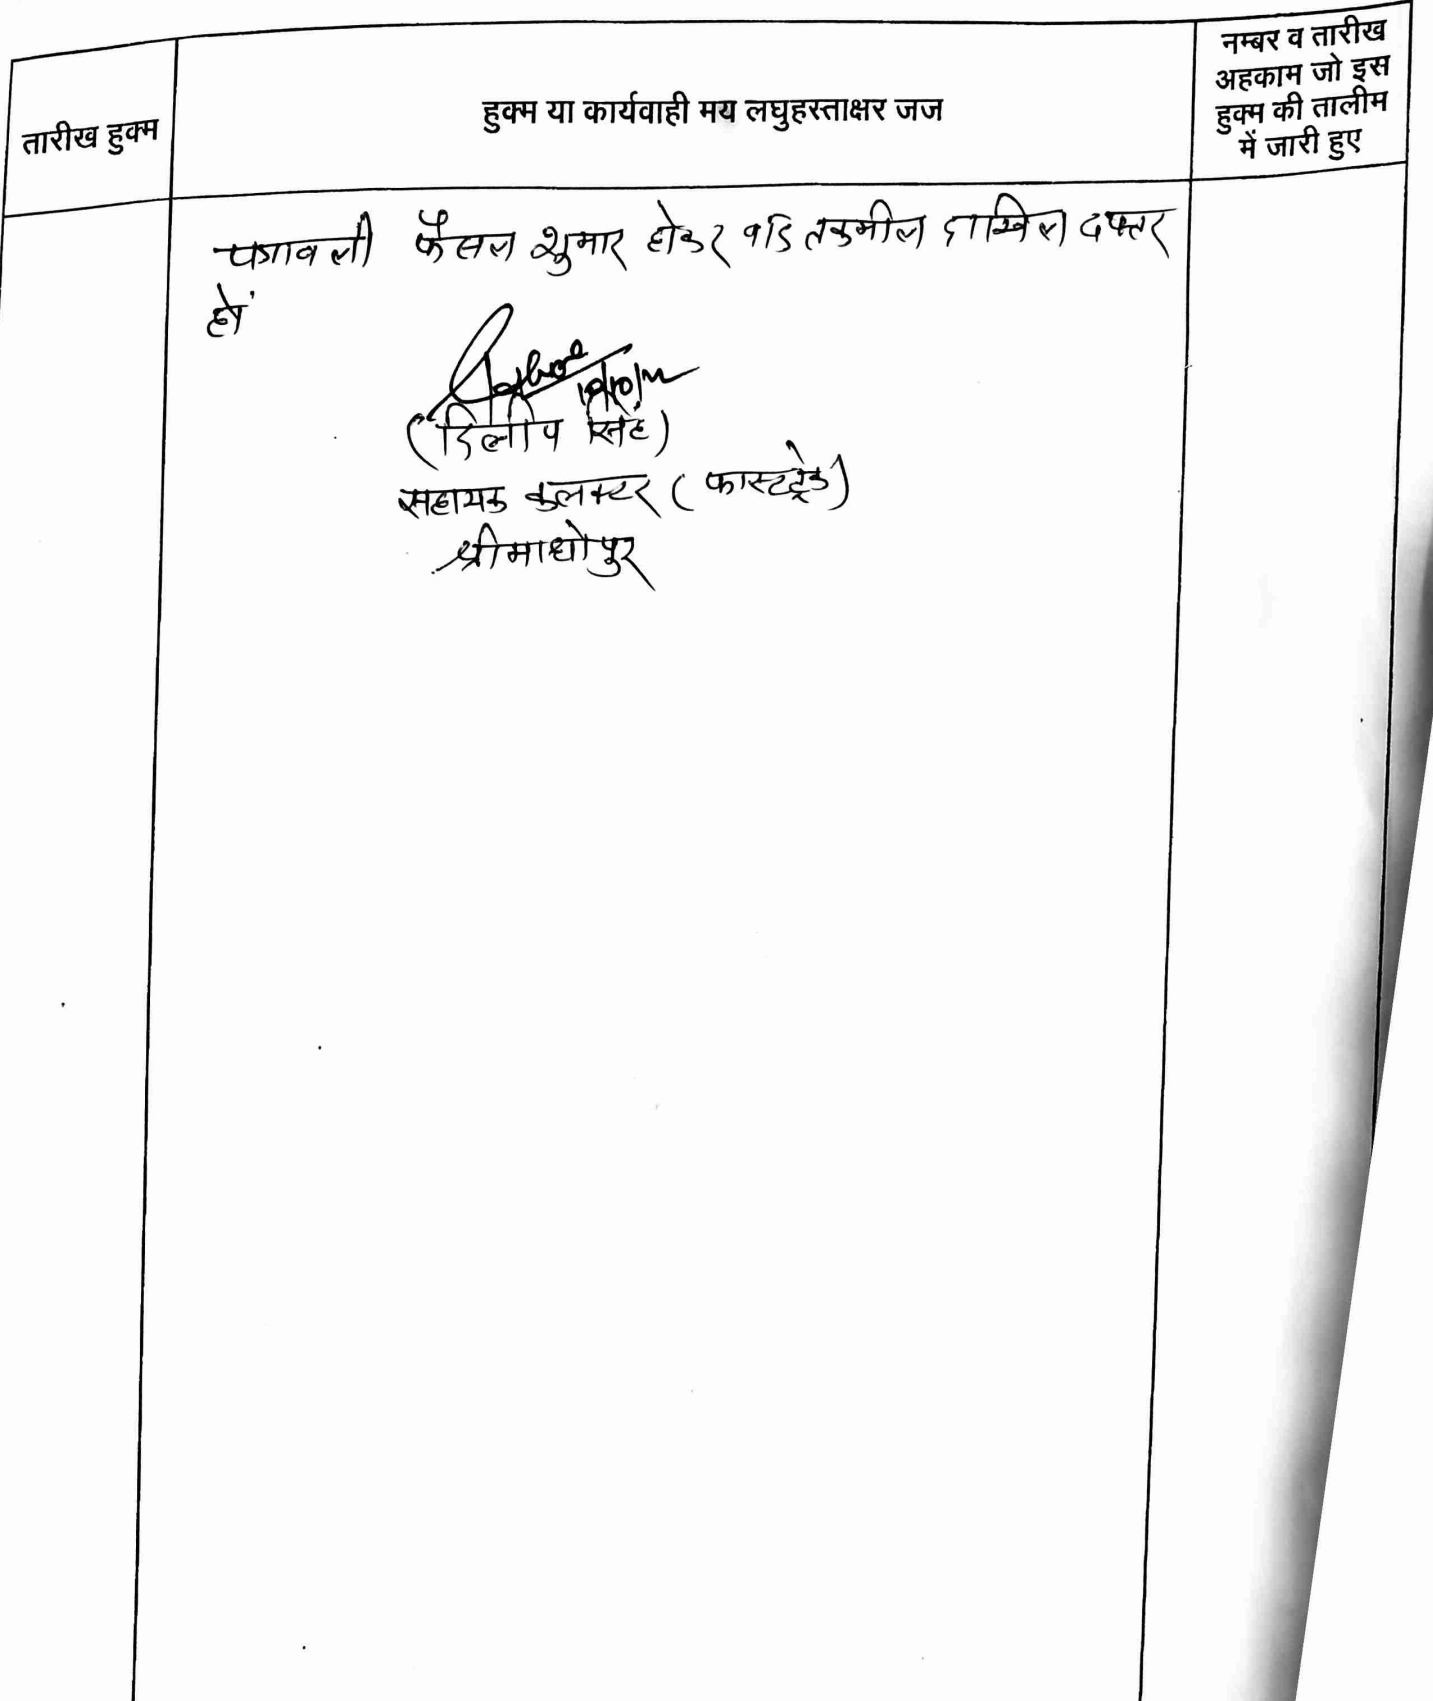 तारीख हुक्म
हुक्म या कार्यवाही मय लघुहस्ताक्षर जज
नम्बर व तारीख
अहकाम जो इस
हुक्म की तालीम
में जारी हुए
पत्रावली फैसल शुमार होकर बाद तकमील दाखिल दफ्तर
हो
(दिलीप सिंह)
सहायक कलक्टर (फास्टट्रेक)
श्रीमाधोपुर